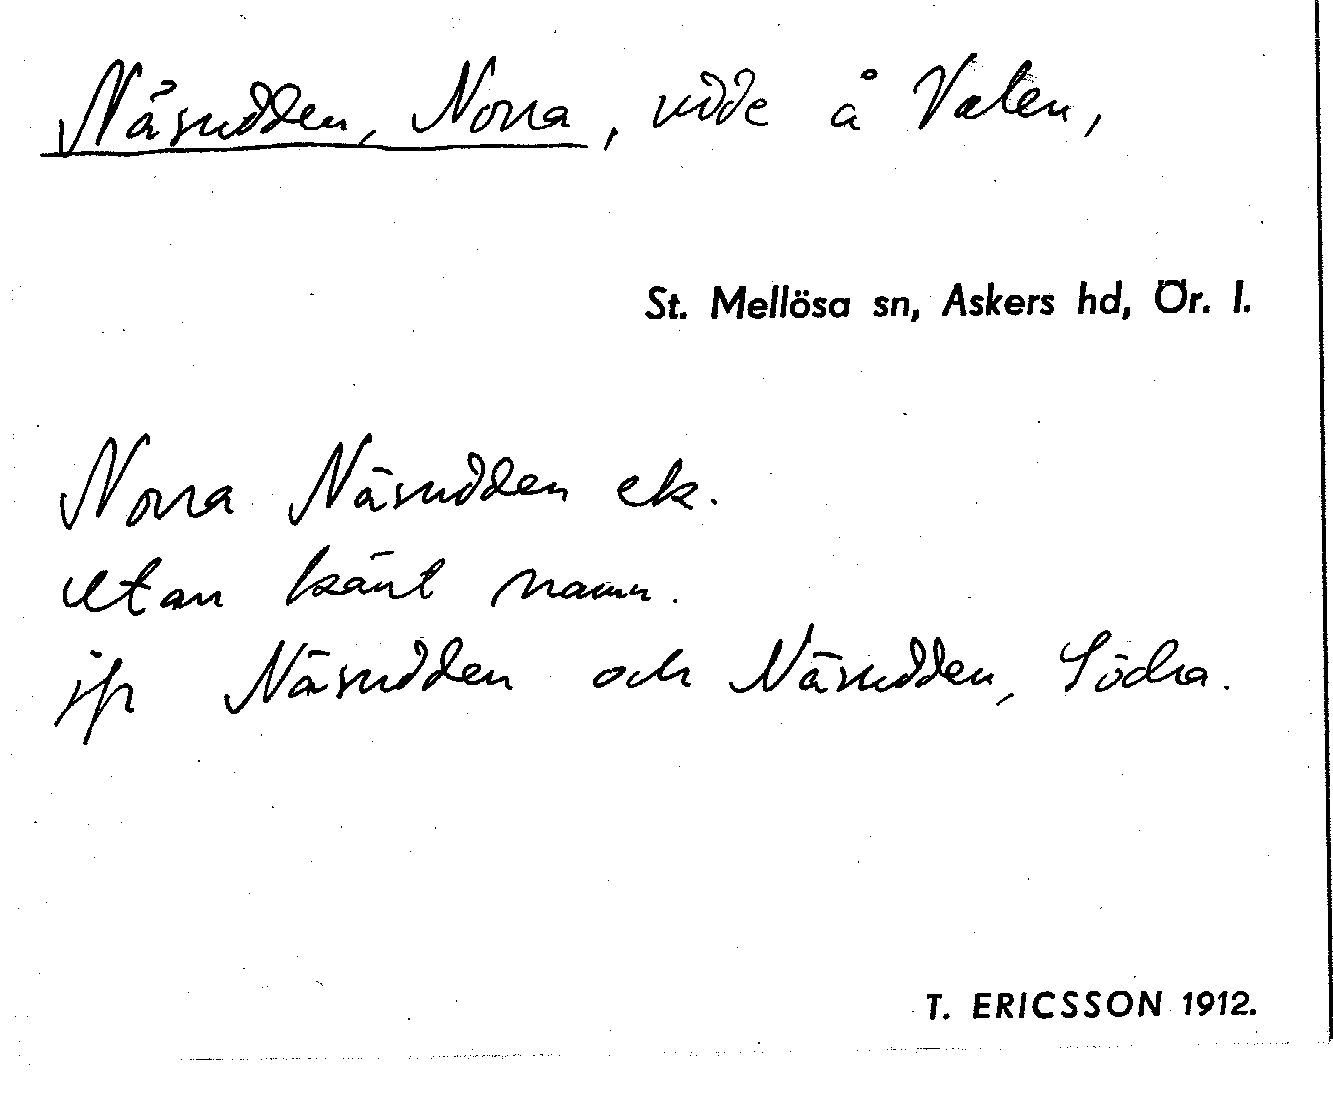 Näsudden, Norra, udde å Valen,
St. Mellösa sn, Askers hd, Ör. l.
Norra Näsudden ek.
utan känt namn.
jfr Näsudden och Näsudden, Södra.
T. ERICSSON 1912.